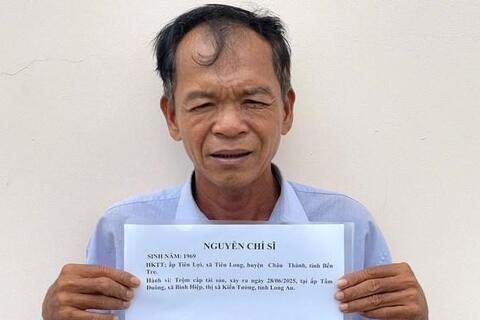 NGUYỄN CHÍ SĨ
SINH NĂM: 1969
HKTT: ấp Tiên Lợi, xã Tiên Long, huyện Châu Thành, tỉnh Bến
Tre.
Hành vi: Trộm cắp tài sản, xảy ra ngày 28/06/2025, tại ấp Tầm
Đuông, xã Bình Hiệp, thị xã Kiến Tường, tỉnh Long An.